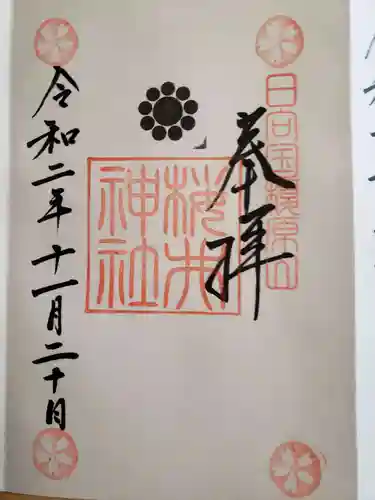 奉拝
日向国領原山
桜井神社
令和二年十一月二十日